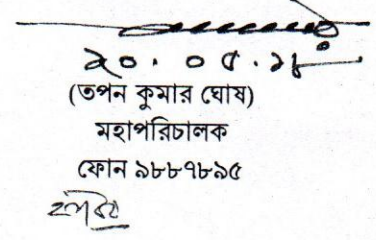 ২০.০৫.১৮
(তপন কুমার ঘোষ)
মহাপরিচালক
ফোন ৯৮৮৭৮৯৫